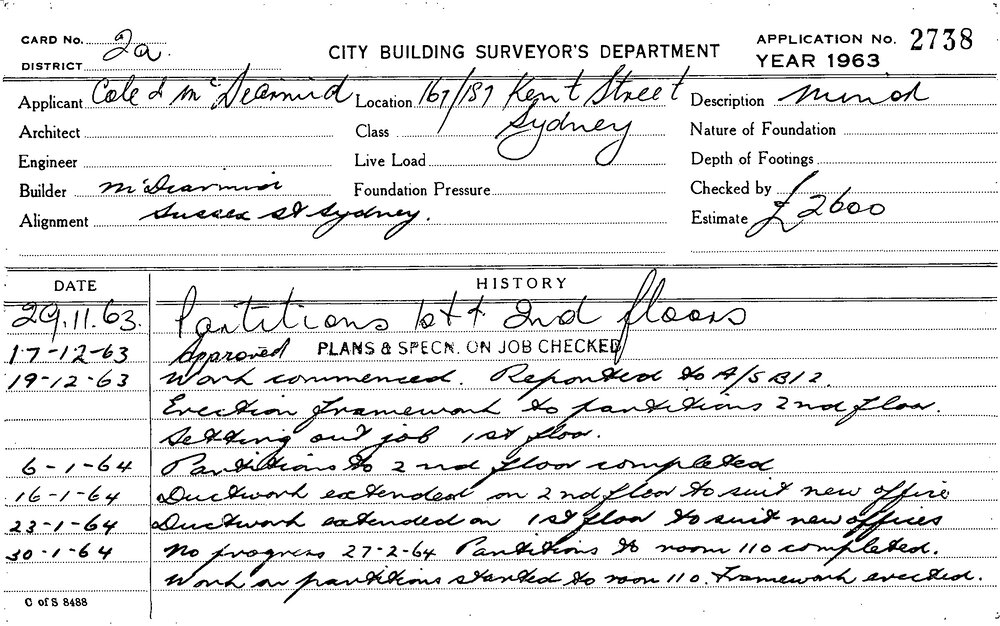 CARD No. 2a
CITY BUILDING SURVEYOR'S DEPARTMENT
APPLICATION No. 2738
DISTRICT
YEAR 1963
Applicant Cole & McDearmid Location 167/187 Kent Street Description Minor
Architect Class Sydney Nature of Foundation
Engineer Live Load Depth of Footings
Builder McDearmid Foundation Pressure Checked by
Alignment Sussex St Sydney. Estimate £2600
DATE HISTORY
29.11.63. Partitions 1st + 2nd floors
17-12-63 Approved PLANS & SPECN. ON JOB CHECKED
19-12-63 Work commenced. Reported to A/S B12.
Erection framework to partitions 2nd floor.
Setting out job 1st floor.
6-1-64 Partitions to 2nd floor completed
16-1-64 Ductwork extended on 2nd floor to suit new office
23-1-64 Ductwork extended on 1st floor to suit new offices
30-1-64 No progress 27-2-64 Partitions to room 110 completed.
Work on partitions started to room 110. Framework erected.
C of S 8488